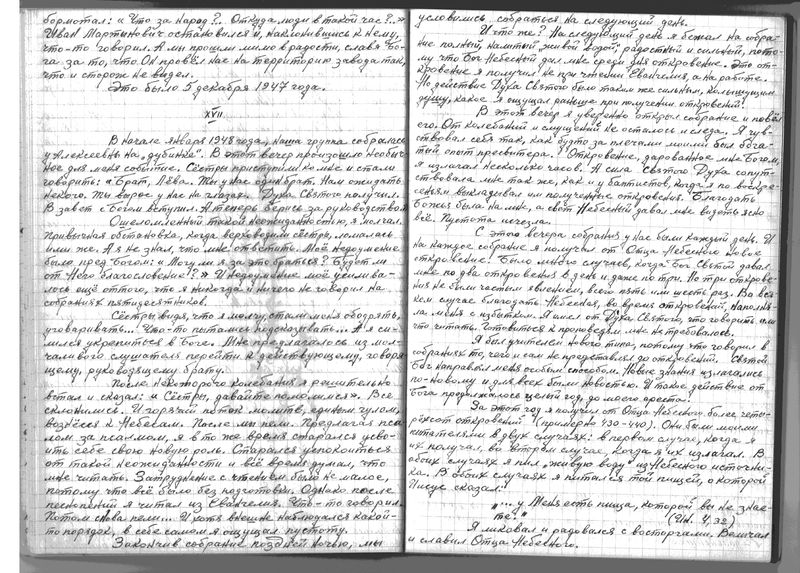 бормотал: „Что за народ?.. Откуда люди в такой час?.."
Иван Мартынович остановился и, наклонившись к нему,
что-то говорил. А мы прошли мимо в радости, славя Бо-
га за то, что Он провёл нас на территорию завода так,
что и сторож не видел.
Это было 5 декабря 1947 года.
XVII
В начале января 1948 года, наша группа собралась
у Алексеевны на „дубинке". В этот вечер произошло необыч-
ное для меня событие. Сёстры приступили ко мне и стали
говорить: „Брат, Лёва. Ты у нас один брат. Нам ожидать
некого. Ты вырос у нас на глазах. Духа Святого получил.
В завет с Богом вступил. А теперь берись за руководство.
Ошеломленный такой неожиданностью, я молчал.
Привычная обстановка, когда верховодили сёстры, ломалась
ими же. А я не знал, что мне ответить. Моё недоумение
было пред Богом: „Могу ли я за это браться? Будет ли
от Него благословение?" И недоумение моё усилива-
лось ещё оттого, что я никогда и ничего не говорил на
собраниях пятидесятников.
Сёстры видя, что я молчу, стали меня ободрять,
уговаривать... Что-то пытались подсказывать... А я си-
лился укрепиться в Боге. Мне предлагалось из мол-
чаливого слушателя перейти к действующему, говоря-
щему, руководящему брату.
После некоторого колебания я решительно
встал и сказал: „Сёстры, давайте помолимся". Все
склонились. И горячий поток молитв, единым гулом,
вознёсся к Небесам. После мы пели. Предлагая пса-
лом за псалмом, я в то же время старался усво-
ить себе свою новую роль. Старался успокоиться
от такой неожиданности и всё время думал, что
мне читать. Затруднение с чтением было не малое,
потому что всё было без подготовки. Однако после
песнопений я читал из Евангелия. Что-то говорил.
Потом снова пели... И хотя внешне наблюдался какой-
то порядок, в себе самом я ощущал пустоту.
Закончив собрание поздней ночью, мы
условились собраться на следующий день.
И что же? На следующий день я бежал на собра-
ние полный, налитый „живой водой", радостный и сильный, пото-
му что Бог Небесный дал мне среди дня откровение. Это от-
кровение я получил не при чтении Евангелия, а на работе.
Но действие Духа Святого было таким же сильным, колышущим
душу, какое я ощущал раньше при получении откровений!
В этот вечер я уверенно открыл собрание и повёл
его. От колебаний и смущений не осталось и следа. Я чув-
ствовал себя так, как будто за плечами моими был бога-
тый опыт пресвитера. Откровение, дарованное мне Богом,
я излагал несколько часов. А сила Святого Духа сопут-
ствовала мне так же, как и у баптистов, когда я по воскре-
сеньям выкладывал им полученные откровения. Благодать
Божья была на мне, а свет Небесный давал мне видеть ясно
всё. Пустота исчезла.
С этого вечера собрания у нас были каждый день. И
на каждое собрание я получал от Отца Небесного новое
откровение! Было много случаев, когда Бог Святой давал
мне по два откровения в день и даже по три. Но три открове-
ния не были частым явлением, всего пять или шесть раз. Во вся-
ком случае благодать Небесная, во время откровений, наполня-
ла меня с избытком. Я имел от Духа Святого, что говорить и
что читать. Готовиться к проповедям мне не требовалось.
Я был учителем нового типа, потому что говорил в
собраниях то, чего и сам не представлял до откровений. Святой
Бог направлял меня особым способом. Новые знания излагались
по-новому и для всех были новостью. И такое действие от
Бога продолжалось целый год, до моего ареста!
За этот год я получил от Отца Небесного более четы-
рёхсот откровений! (примерно 430-440). Они были моими
питателями в двух случаях: в первом случае, когда я
их получал, во втором случае, когда я их излагал. В
обоих случаях я пил „живую воду" из Небесного источни-
ка. В обоих случаях я питался той пищей, о которой
Иисус сказал:
„... у Меня есть пища, которой вы не знае-
те." (Ин. 4,32)
Я ликовал и радовался с восторгами. Величал
и славил Отца Небесного.